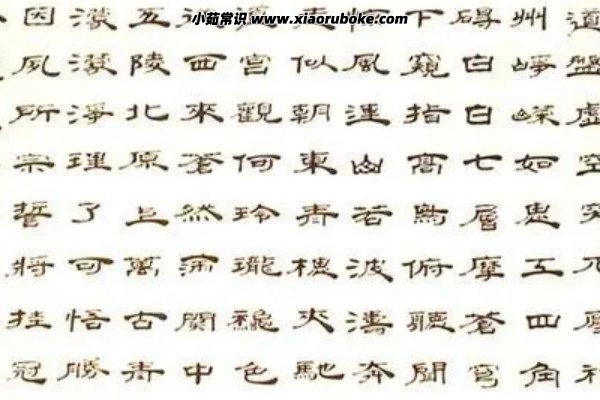 小茹常识 www.xiaoruboke.com
道盤虛空突兀層神
州崢嶸如鬼工四角
碍白白七層摩蒼穹
下窺指高鳥俯聽聞
風連山若波濤奔
似朝東青槐夾馳
道宮觀何玲瓏龝色
從西來蒼然滿關中
五陵北原上萬古青
濛濛淨理了可悟勝
因夙所宗誓將挂冠